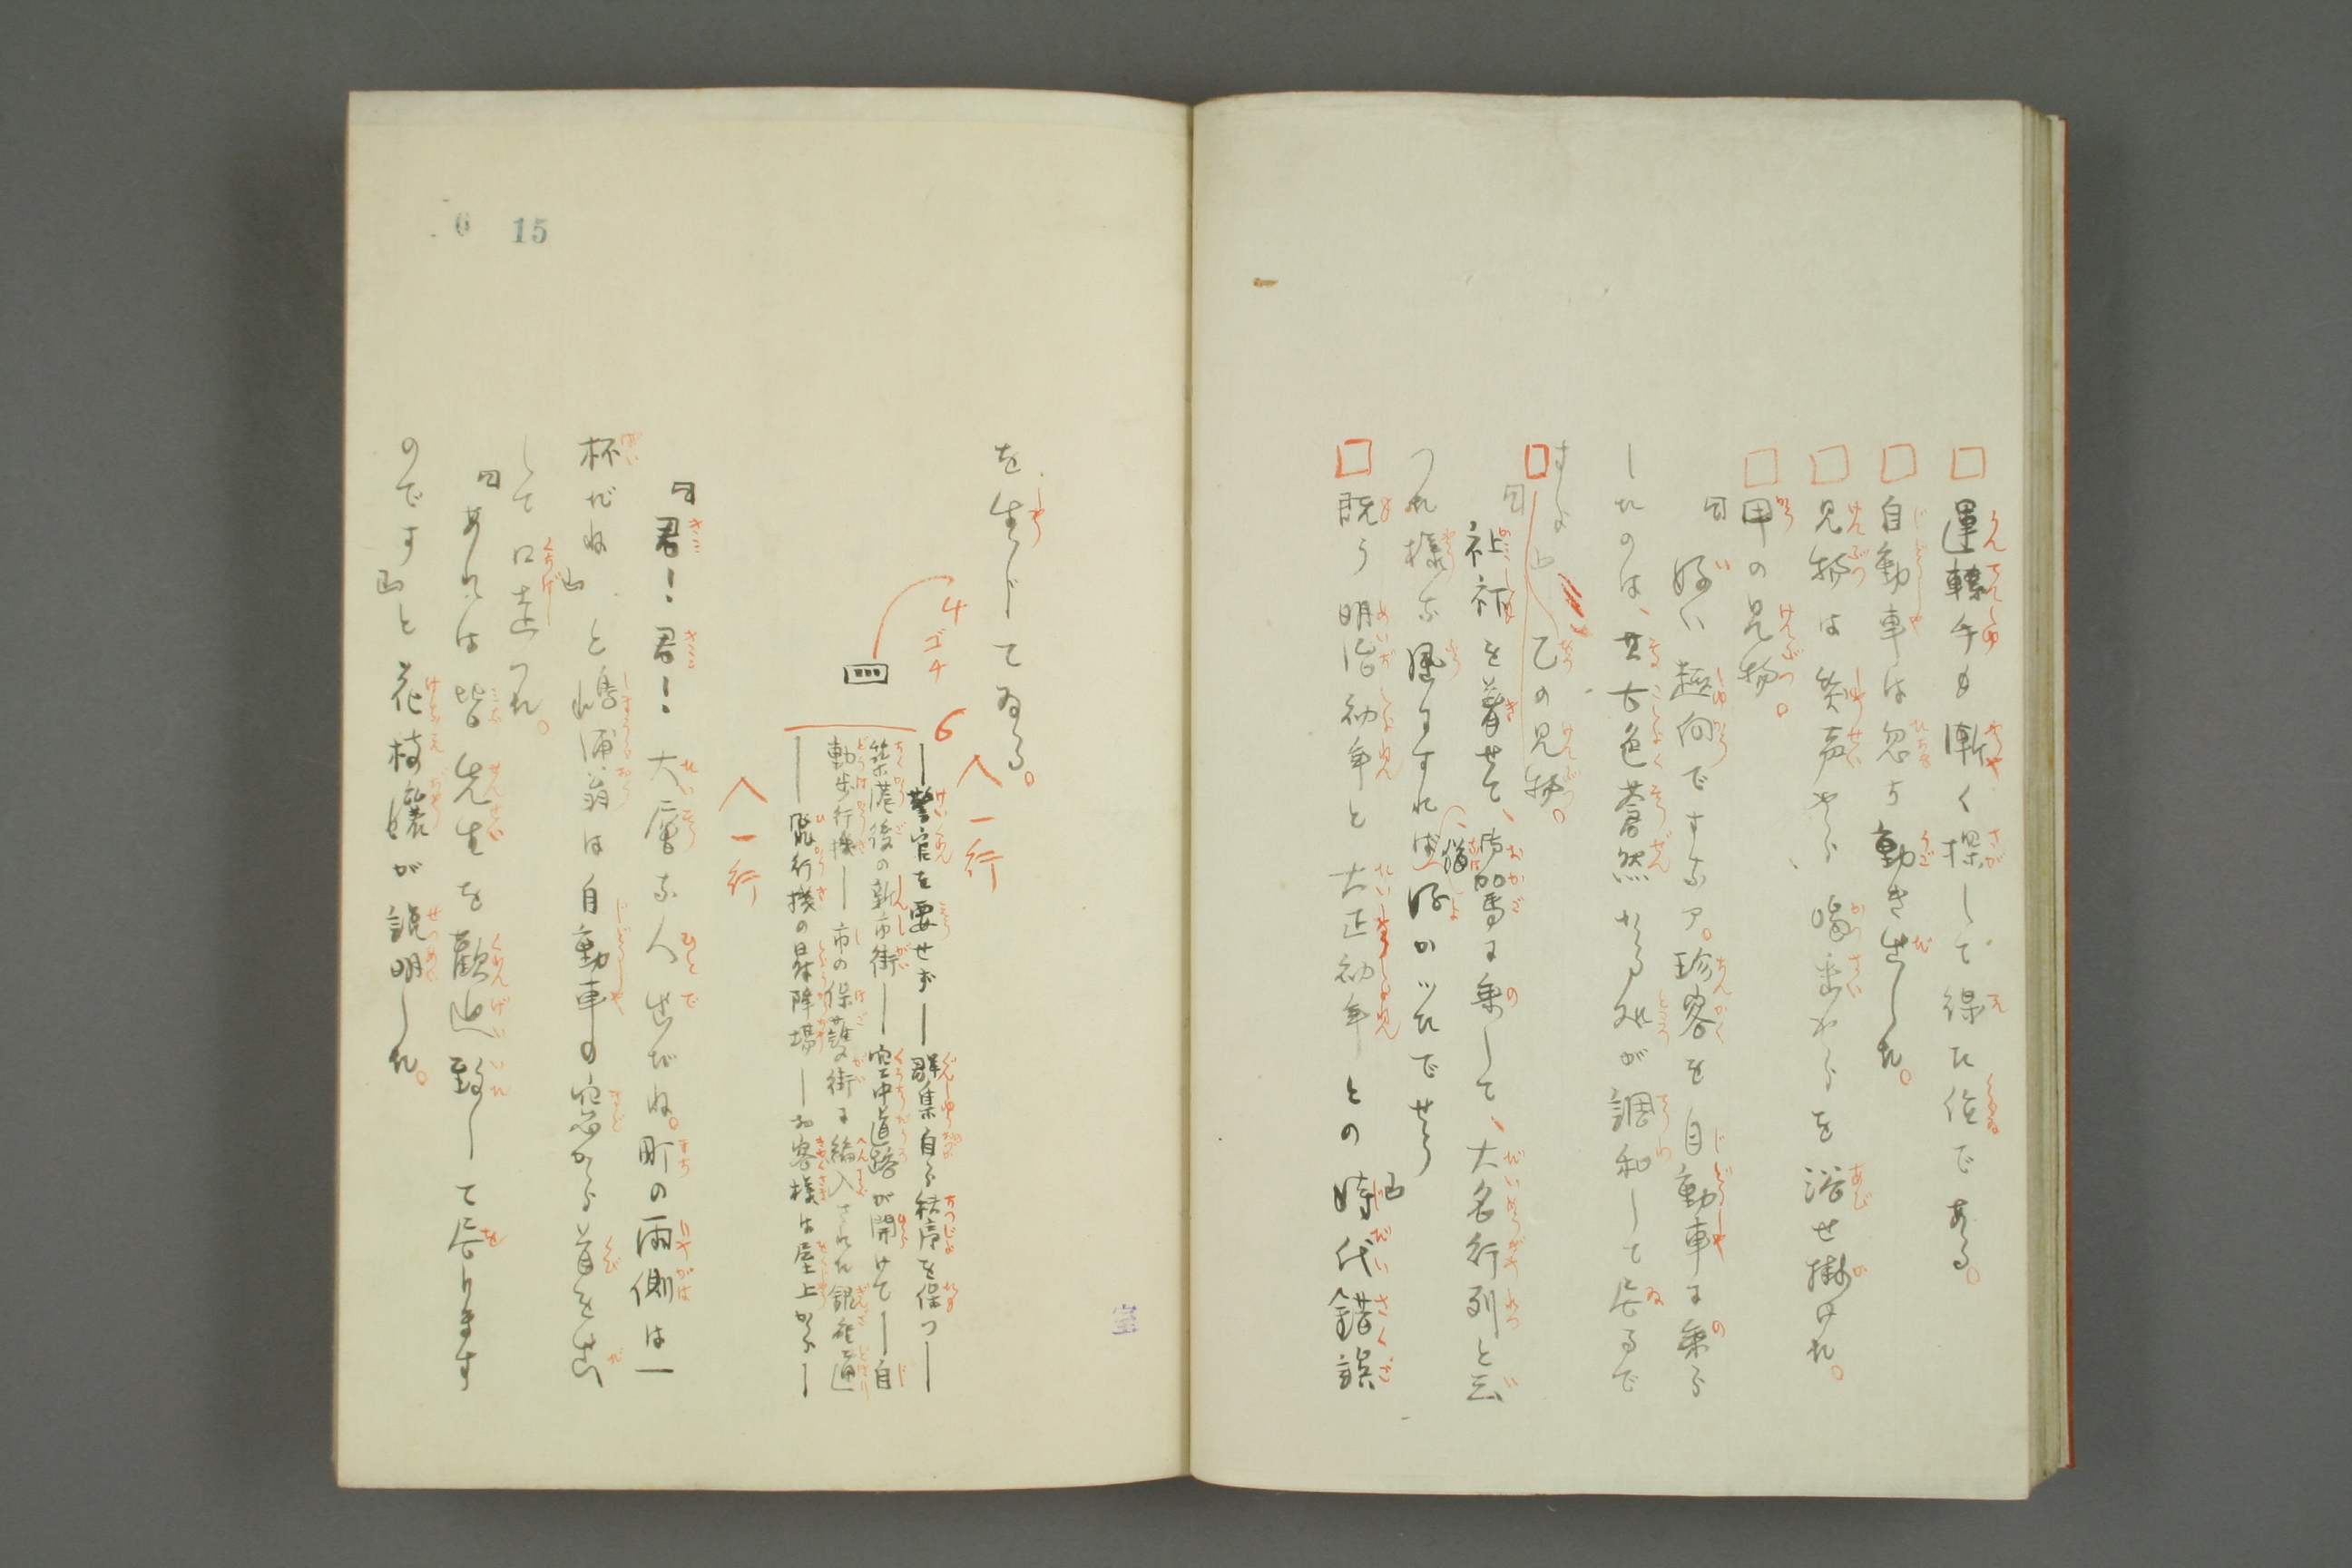 □運轉手も漸く探して得た位である。
□自動車は忽ち動き出した。
□見物は笑声やら喝采やらを浴せ掛けた。
□甲の見物。
『好い趣向ですなア。珍客を自動車に乗ら
したのは、其古色蒼然たる処が調和して居るで
すな』
□乙の見物。
『裃を着せて、御駕に乗して、大名行列と云
つた様な風にすれば猶好かツたでせう』
□既う明治初年と大正初年との時代錯誤
を生じてゐる。
4ゴチ
(三)
6
入一行
―警官を要せず―群集自ら秩序を保つ―
築港後の新市街―空中道路が開けて―自
動歩行機―市の保護街に編入された銀座通
―飛行機の昇降場―お客様は屋上から―
入一行
『君!君!大層な人出だね。町の両側は一
杯だね』と嶋浦翁は自動車の窓から首を出
して口走つた。
『あれは皆先生を歓迎致して居ります
のです』と花枝孃が説明した。
6 15